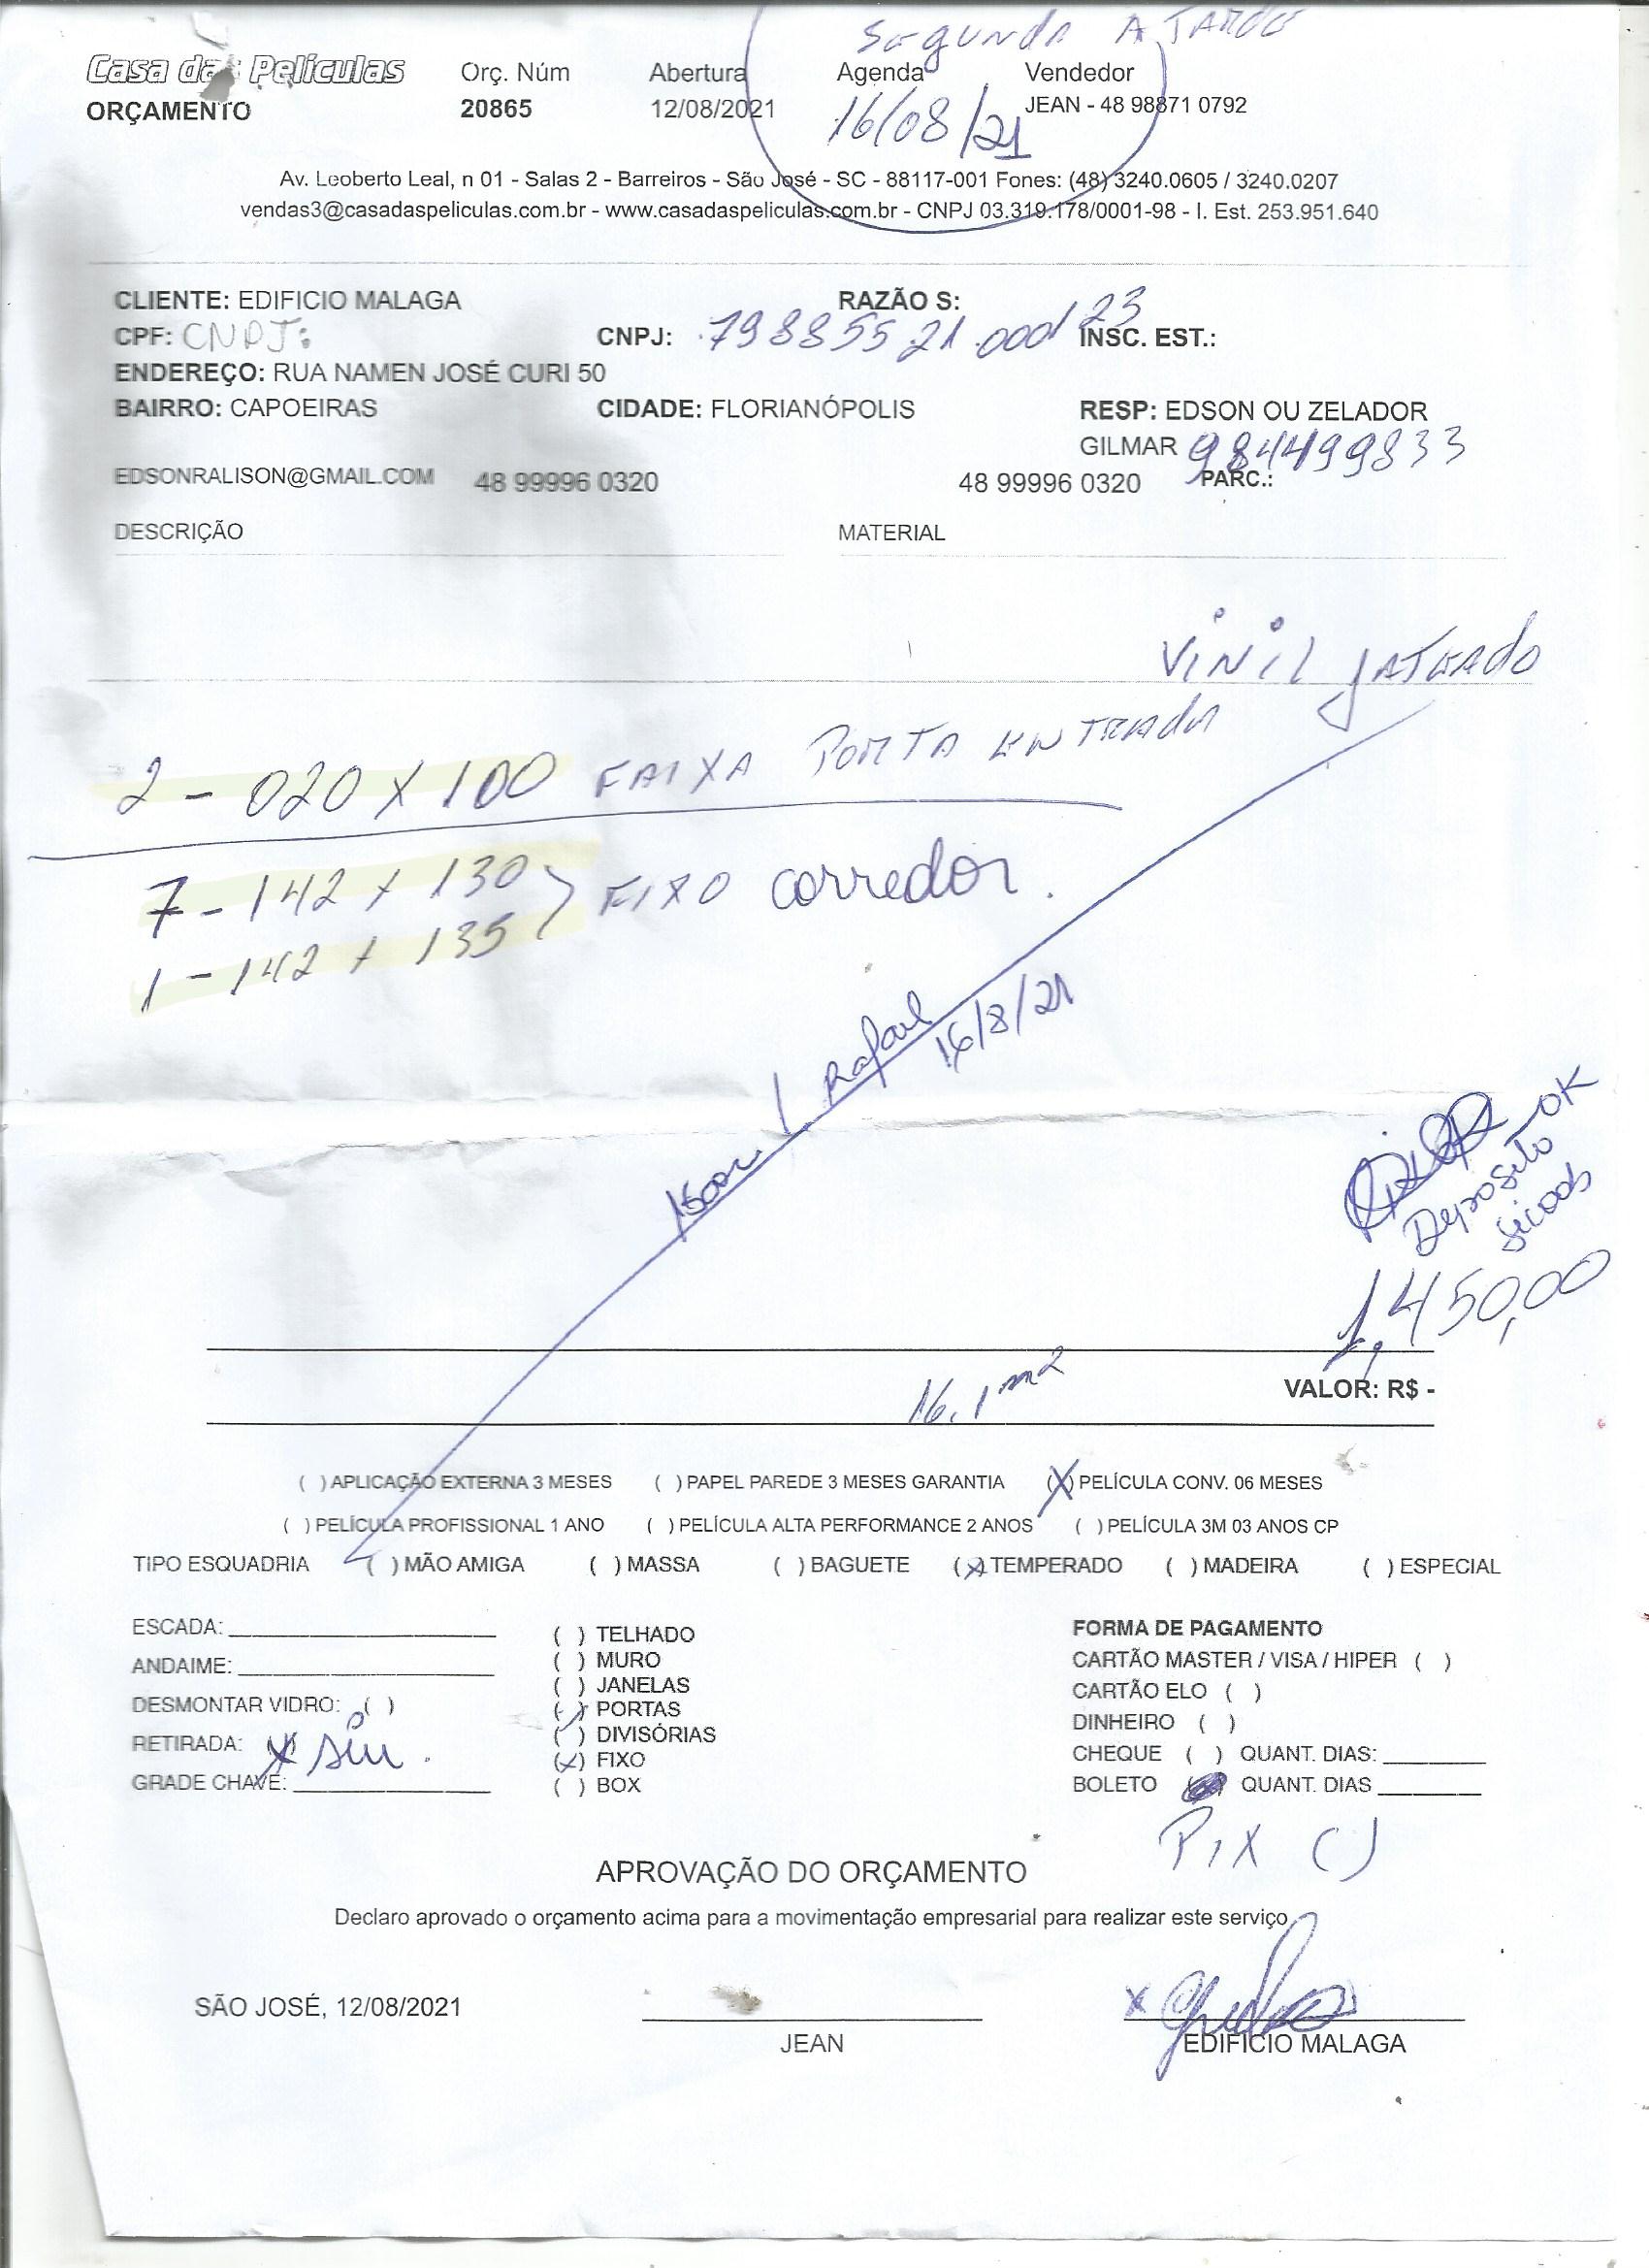 Segunda A TARDE
Casa das Películas Orç. Núm Abertura Agenda Vendedor
ORÇAMENTO 20865 12/08/2021 16/08/21 JEAN - 48 98871 0792
Av. Leoberto Leal, n 01 - Salas 2 - Barreiros - São José - SC - 88117-001 Fones: (48) 3240.0605 / 3240.0207
vendas3@casadaspeliculas.com.br - www.casadaspeliculas.com.br - CNPJ 03.319.178/0001-98 - I. Est. 253.951.640
CLIENTE: EDIFICIO MALAGA RAZÃO S:
CPF: CNPJ: CNPJ: 79885521.0001 23 INSC. EST.:
ENDEREÇO: RUA NAMEN JOSÉ CURI 50
BAIRRO: CAPOEIRAS CIDADE: FLORIANÓPOLIS RESP: EDSON OU ZELADOR
GILMAR 984499833
EDSONRALISON@GMAIL.COM 48 99996 0320 48 99996 0320 PARC.:
DESCRIÇÃO MATERIAL
VINIL JATEADO
2 - 020 X 100 FAIXA PORTA ENTRADA
7 - 142 x 130 FIXO corredor.
1 - 142 x 135
Rafael
16/8/21
OK
Deposito
Sicoob
1.450,00
16,1 m2 VALOR: R$ -
( ) APLICAÇÃO EXTERNA 3 MESES ( ) PAPEL PAREDE 3 MESES GARANTIA (X) PELÍCULA CONV. 06 MESES
( ) PELÍCULA PROFISSIONAL 1 ANO ( ) PELÍCULA ALTA PERFORMANCE 2 ANOS ( ) PELÍCULA 3M 03 ANOS CP
TIPO ESQUADRIA ( ) MÃO AMIGA ( ) MASSA ( ) BAGUETE (X) TEMPERADO ( ) MADEIRA ( ) ESPECIAL
ESCADA:
ANDAIME:
DESMONTAR VIDRO: ( )
RETIRADA: (X) sim.
GRADE CHAVE:
( ) TELHADO
( ) MURO
( ) JANELAS
(x) PORTAS
( ) DIVISÓRIAS
(x) FIXO
( ) BOX
FORMA DE PAGAMENTO
CARTÃO MASTER / VISA / HIPER ( )
CARTÃO ELO ( )
DINHEIRO ( )
CHEQUE ( ) QUANT. DIAS:
BOLETO ( ) QUANT. DIAS
PIX ( )
APROVAÇÃO DO ORÇAMENTO
Declaro aprovado o orçamento acima para a movimentação empresarial para realizar este serviço
SÃO JOSÉ, 12/08/2021
x
JEAN EDIFICIO MALAGA